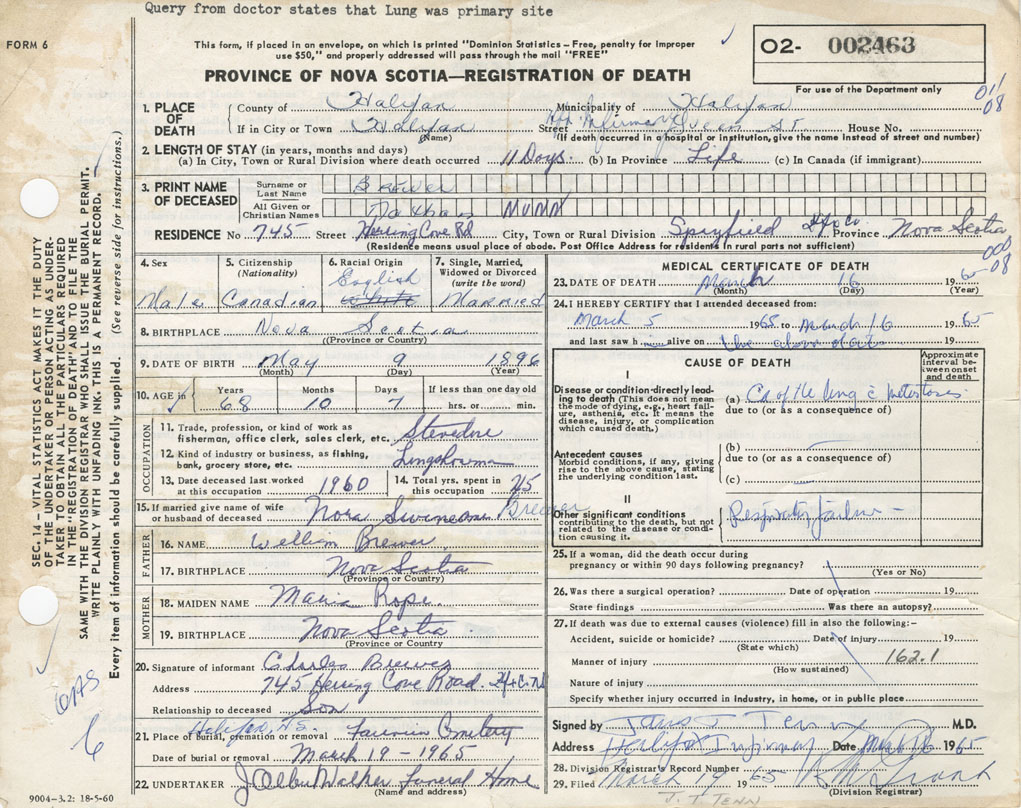 Query from doctor states that Lung was primary site
FORM 6
This form, if placed in an envelope, on which is printed "Dominion Statistics – Free, penalty for improper
use $50," and properly addressed will pass through the mail "FREE"
O2- 002463
For use of the Department only
PROVINCE OF NOVA SCOTIA—REGISTRATION OF DEATH
01/08
1. PLACE OF DEATH
County of Halifax Municipality of Halifax
If in City or Town Halifax Street Hfx Infirmary Queen St House No.
(Name) (If death occurred in a hospital or institution, give the name instead of street and number)
2. LENGTH OF STAY (in years, months and days)
(a) In City, Town or Rural Division where death occurred 11 Days. (b) In Province Life (c) In Canada (if immigrant)
3. PRINT NAME OF DECEASED
Surname or Last Name Brewer
All Given or Christian Names Nathan Mumm
RESIDENCE No 745 Street Herring Cove Rd City, Town or Rural Division Spryfield Hfx Co. Province Nova Scotia
(Residence means usual place of abode. Post Office Address for residents in rural parts not sufficient)
000/08
4. Sex Male
5. Citizenship (Nationality) Canadian
6. Racial Origin English White
7. Single, Married, Widowed or Divorced (write the word) Married
8. BIRTHPLACE Nova Scotia
(Province or Country)
9. DATE OF BIRTH May 9 1896
(Month) (Day) (Year)
10. AGE in Years 68 Months 10 Days 7 If less than one day old hrs. or min.
OCCUPATION
11. Trade, profession, or kind of work as fisherman, office clerk, sales clerk, etc. Stevedore
12. Kind of industry or business, as fishing, bank, grocery store, etc. Longshoreman
13. Date deceased last worked at this occupation 1960
14. Total yrs. spent in this occupation 45
15. If married give name of wife or husband of deceased Nora Brewer
FATHER
16. NAME William Brewer
17. BIRTHPLACE Nova Scotia
(Province or Country)
MOTHER
18. MAIDEN NAME Maria Rope
19. BIRTHPLACE Nova Scotia
(Province or Country)
20. Signature of informant Charles Brewer
Address 745 Herring Cove Road.
Relationship to deceased Son
21. Place of Burial, cremation or removal Halifax, N.S. Fairview Cemetery
Date of burial or removal March 19 - 1965
22. UNDERTAKER J Albert Walker Funeral Home
(Name and address)
9004-3.2: 18-5-60
MEDICAL CERTIFICATE OF DEATH
23. DATE OF DEATH March 16 1965
(Month) (Day) (Year)
24. I HEREBY CERTIFY that I attended deceased from:
March 5 1965 to March 16 1965
and last saw h alive on the above date
CAUSE OF DEATH
Approximate interval between onset and death
I
Disease or condition directly leading to death (This does not mean the mode of dying, e.g., heart failure, asthenia, etc. It means the disease, injury, or complication which caused death.)
(a) Ca of the lung c̄ metastases
due to (or as a consequence of)
Antecedent causes
Morbid conditions, if any, giving rise to the above cause, stating the underlying condition last.
(b)
due to (or as a consequence of)
(c)
II
Other significant conditions contributing to the death, but not related to the disease or condition causing it.
Respiratory failure -
25. If a woman, did the death occur during pregnancy or within 90 days following pregnancy?
(Yes or No)
26. Was there a surgical operation? Date of operation 19
State findings Was there an autopsy?
27. If death was due to external causes (violence) fill in also the following:-
Accident, suicide or homicide? Date of injury 19
(State which)
162.1
Manner of injury
(How sustained)
Nature of injury
Specify whether injury occurred in Industry, in home, or in public place
Signed by M.D.
Address Halifax Infirmary Date March 16 1965
28. Division Registrar's Record Number
29. Filed March 19 1965
(Division Registrar)
J. T. TENN
SEC. 14 – VITAL STATISTICS ACT MAKES IT THE DUTY
OF THE UNDERTAKER OR PERSON ACTING AS UNDER-
TAKER TO OBTAIN ALL THE PARTICULARS REQUIRED
IN THE "REGISTRATION OF DEATH" AND TO FILE THE
SAME WITH THE DIVISION REGISTRAR WHO SHALL ISSUE THE BURIAL PERMIT.
WRITE PLAINLY WITH UNFADING INK. THIS IS A PERMANENT RECORD.
Every item of information should be carefully supplied. (See reverse side for instructions.)
OAS
6